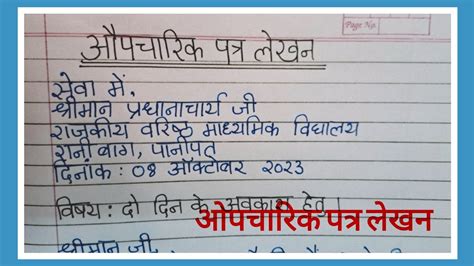 Page No.
औपचारिक पत्र लेखन
सेवा में,
श्रीमान प्रधानाचार्य जी
राजकीय वरिष्ठ माध्यमिक विद्यालय
रानी बाग, पानीपत
दिनांक : 08 ऑक्टोबर २०२3
विषय : दो दिन के अवकाश हेतु।
ओपचारिक पत्र लेखन
श्रीमान जी,